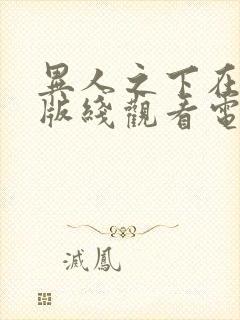 異人之下在
版綫觀看電
滅鳳